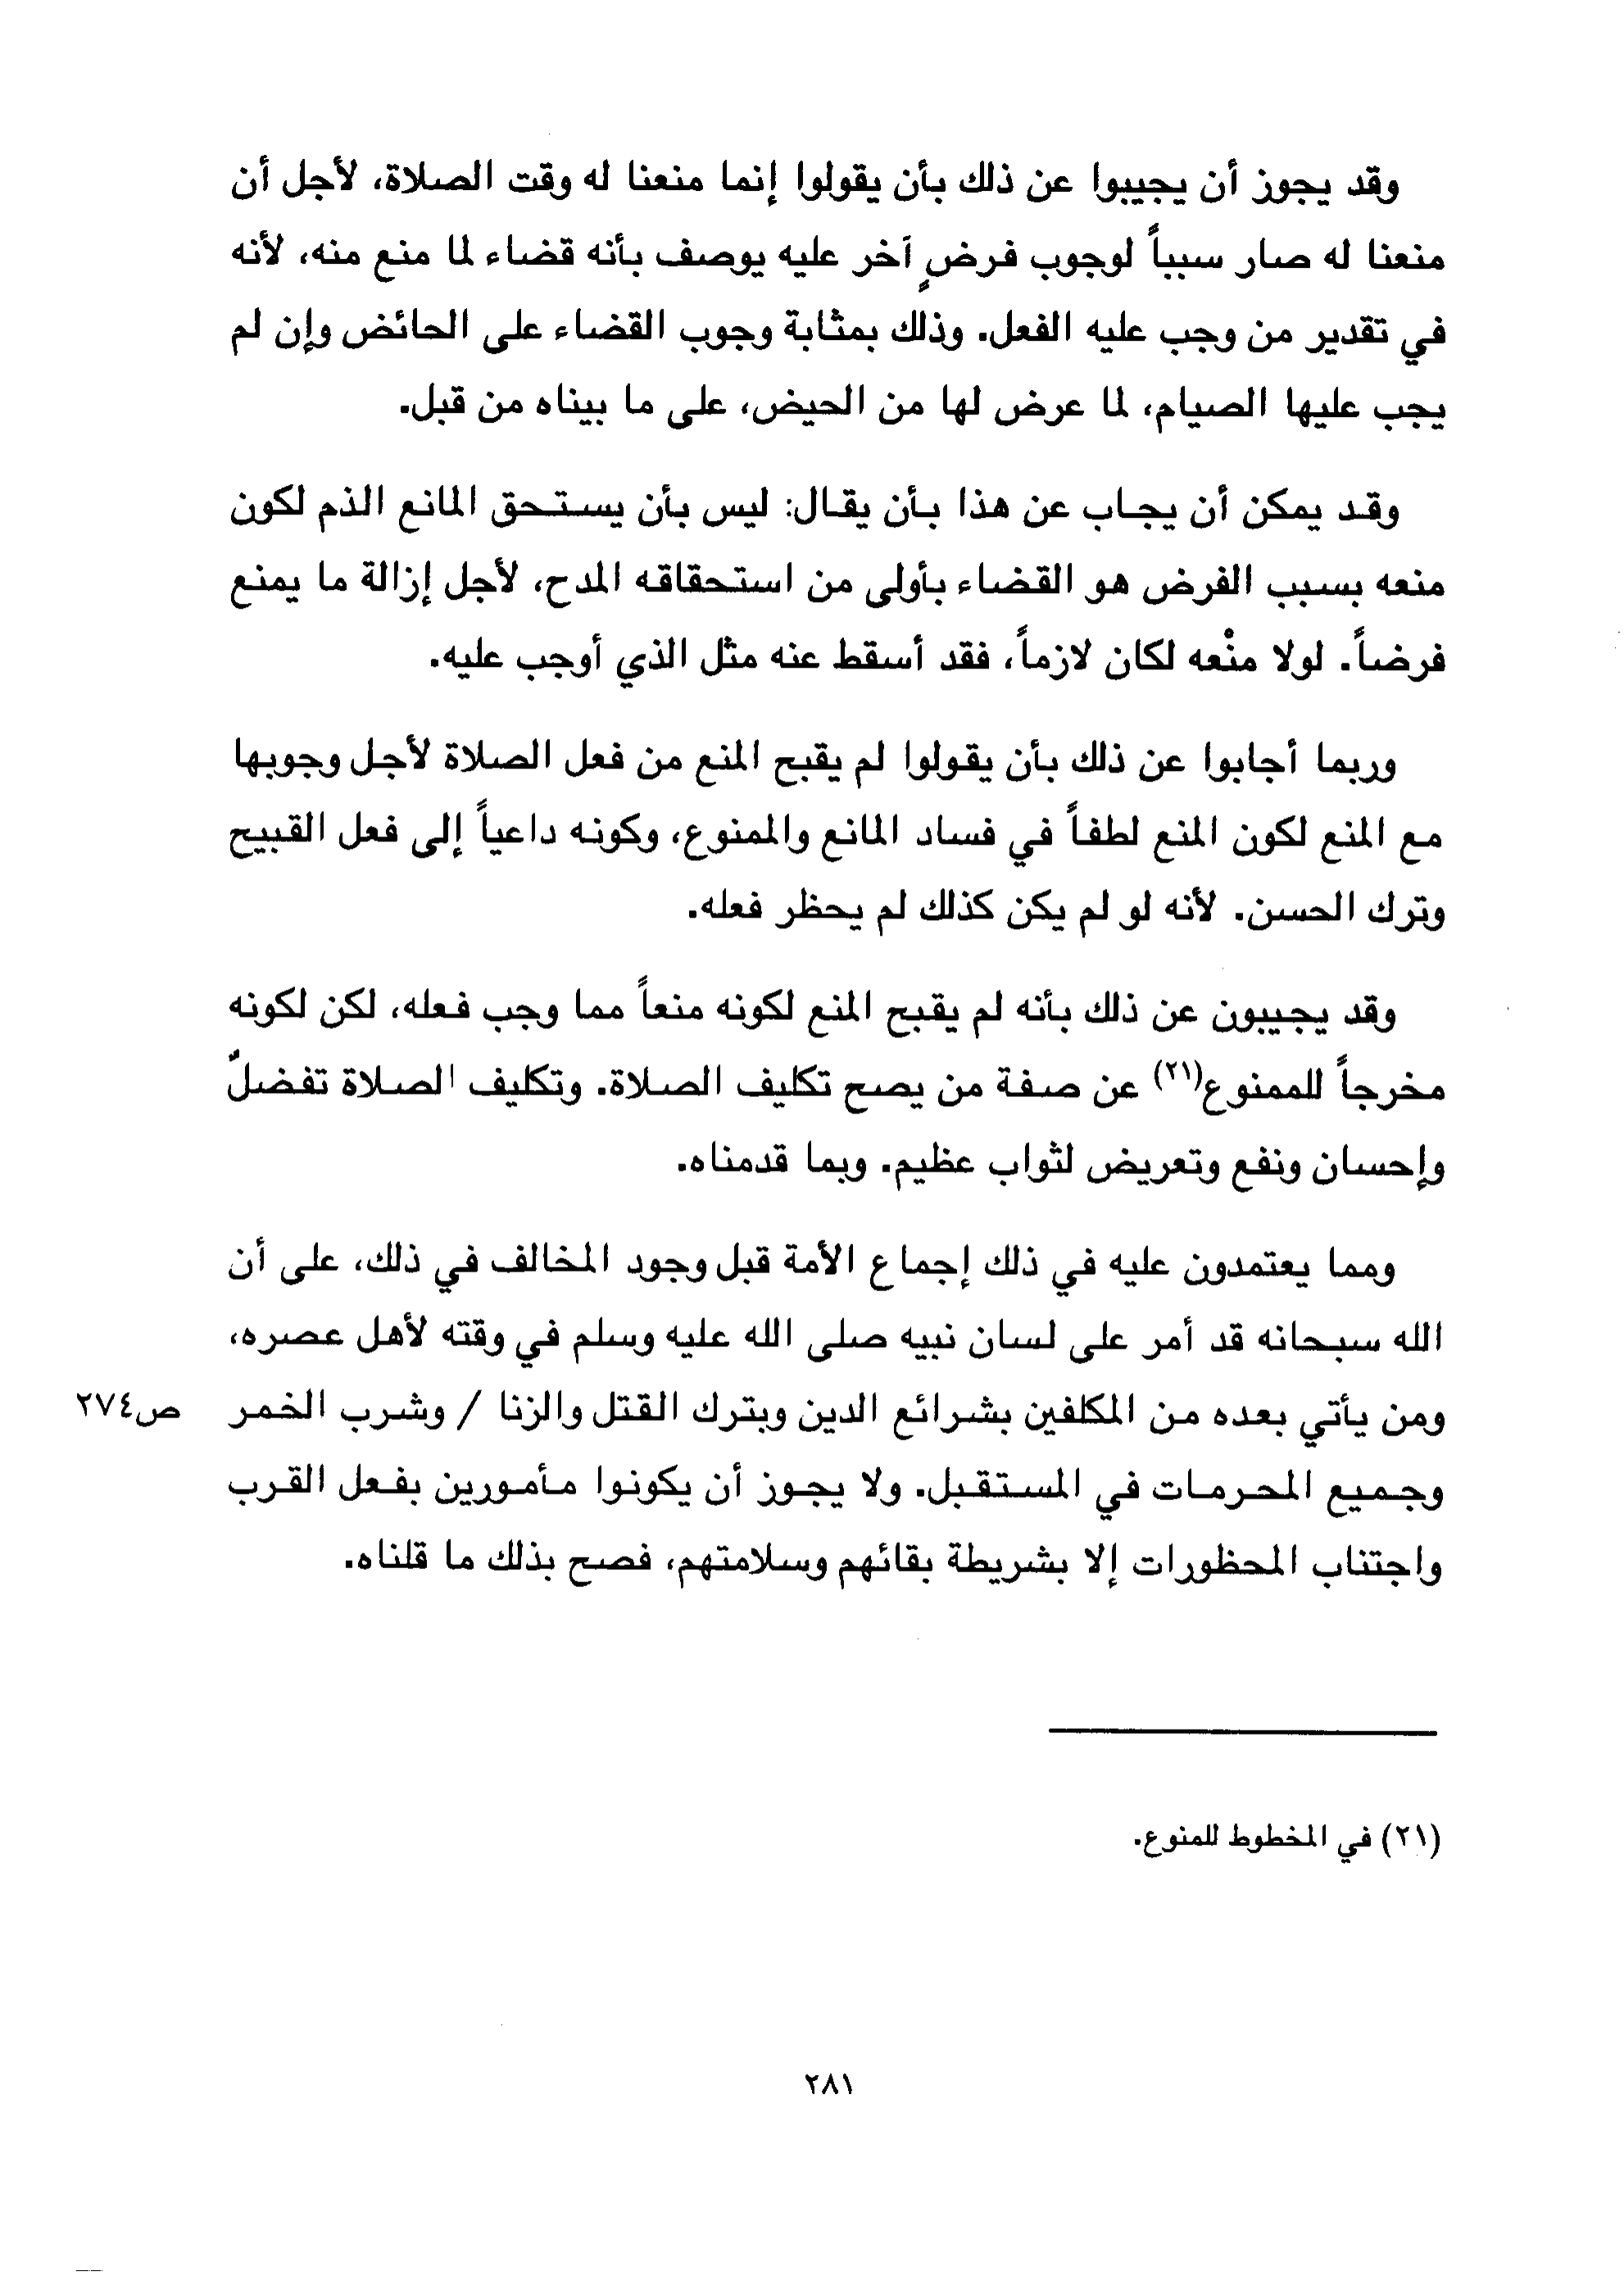 وقد يجوز أن يجيبوا عن ذلك بأن يقولوا إنما منعنا له وقت الصلاة، لأجل أن
منعنا له صار سبباً لوجوب فرضٍ آخر عليه يوصف بأنه قضاء لما منع منه، لأنه
في تقدير من وجب عليه الفعل. وذلك بمثابة وجوب القضاء على الحائض وإن لم
يجب عليها الصيام، لما عرض لها من الحيض، على ما بيناه من قبل.
وقد يمكن أن يجاب عن هذا بأن يقال: ليس بأن يستحق المانع الذم لكون
منعه بسبب الفرض هو القضاء بأولى من استحقاقه المدح، لأجل إزالة ما يمنع
فرضاً. لولا منْعه لكان لازماً، فقد أسقط عنه مثل الذي أوجب عليه.
وربما أجابوا عن ذلك بأن يقولوا لم يقبح المنع من فعل الصلاة لأجل وجوبها
مع المنع لكون المنع لطفاً في فساد المانع والممنوع، وكونه داعياً إلى فعل القبيح
وترك الحسن. لأنه لو لم يكن كذلك لم يحظر فعله.
وقد يجيبون عن ذلك بأنه لم يقبح المنع لكونه منعاً مما وجب فعله، لكن لكونه
مخرجاً للممنوع(٢١) عن صفة من يصح تكليف الصلاة. وتكليف الصلاة تفضلٌ
وإحسان ونفع وتعريض لثواب عظيم. وبما قدمناه.
ومما يعتمدون عليه في ذلك إجماع الأمة قبل وجود المخالف في ذلك، على أن
الله سبحانه قد أمر على لسان نبيه صلى الله عليه وسلم في وقته لأهل عصره،
ومن يأتي بعده من المكلفين بشرائع الدين وبترك القتل والزنا / وشرب الخمر ص٢٧٤
وجميع المحرمات في المستقبل. ولا يجوز أن يكونوا مأمورين بفعل القرب
واجتناب المحظورات إلا بشريطة بقائهم وسلامتهم، فصح بذلك ما قلناه.
(٢١) في المخطوط للمنوع.
٢٨١